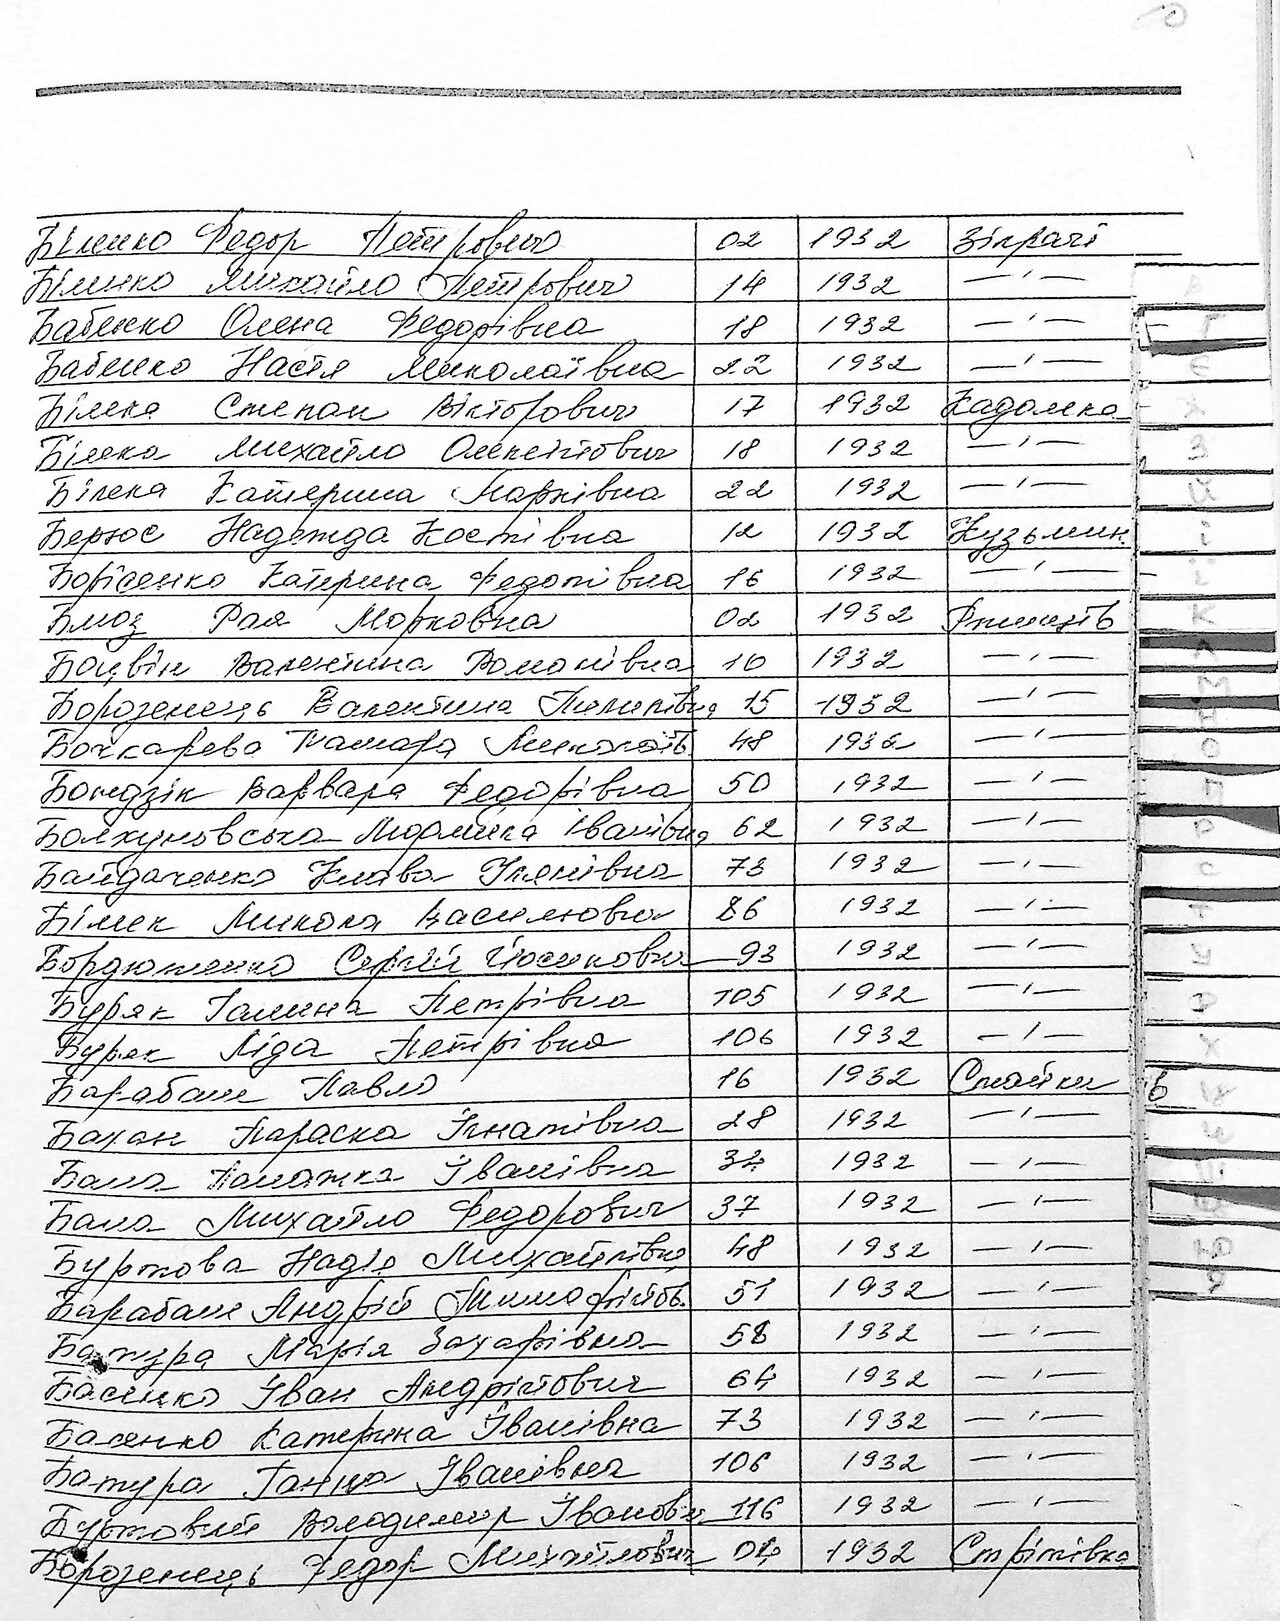 Біленко Федор Петрович 02 1932 Зікрачі
Біленко Михайло Петрович 14 1932 —ı—
Бабенко Олена Федорівна 18 1932 —ı—
Бабенко Настя Миколаївна 22 1932 —ı—
Білека Степан Вікторович 17 1932 Кадомка
Білека Михайло Олексійович 18 1932 —ı—
Білека Катерина Марківна 22 1932 —ı—
Надежда Костівна 12 1932 Кузьмин.
Борісенко Катерина Федотівна 16 1932 —ı—
Рая Морковна 02 1932
Боцвін Валентина Романівна 10 1932 —ı—
Борозенець Валентина Пилипівна 15 1932 —ı—
Бочкарева Тамара Миколаїв. 48 1932 —ı—
Бондзік Варвара Федорівна 50 1932 —ı—
Болхуновська Людмила Іванівна 62 1932 —ı—
Байдаченко Клава 73 1932 —ı—
Білек Микола Васильович 86 1932 —ı—
Бордюженко Сергій Йосипович 93 1932 —ı—
Буряк Галина Петрівна 105 1932 —ı—
Буряк Ліда Петрівна 106 1932 —ı—
Барабаш Павло 16 1932 Стайки
Бахан Параска Ігнатівна 28 1932 —ı—
Бала Палажка Іванівна 34 1932 —ı—
Бала Михайло Федорович 37 1932 —ı—
Буртова Надія Михайлівна 48 1932 —ı—
Барабаш Андрій Тимофійов. 51 1932 —ı—
Батура Марія Захарівна 58 1932 —ı—
Басенко Іван Андрійович 64 1932 —ı—
Басенко Катерина Іванівна 73 1932 —ı—
Батура Ганна Іванівна 106 1932 —ı—
Буртовий Володимир Іванович 116 1932 —ı—
Борозенець Федор Михайлович 04 1932 Стрітівка